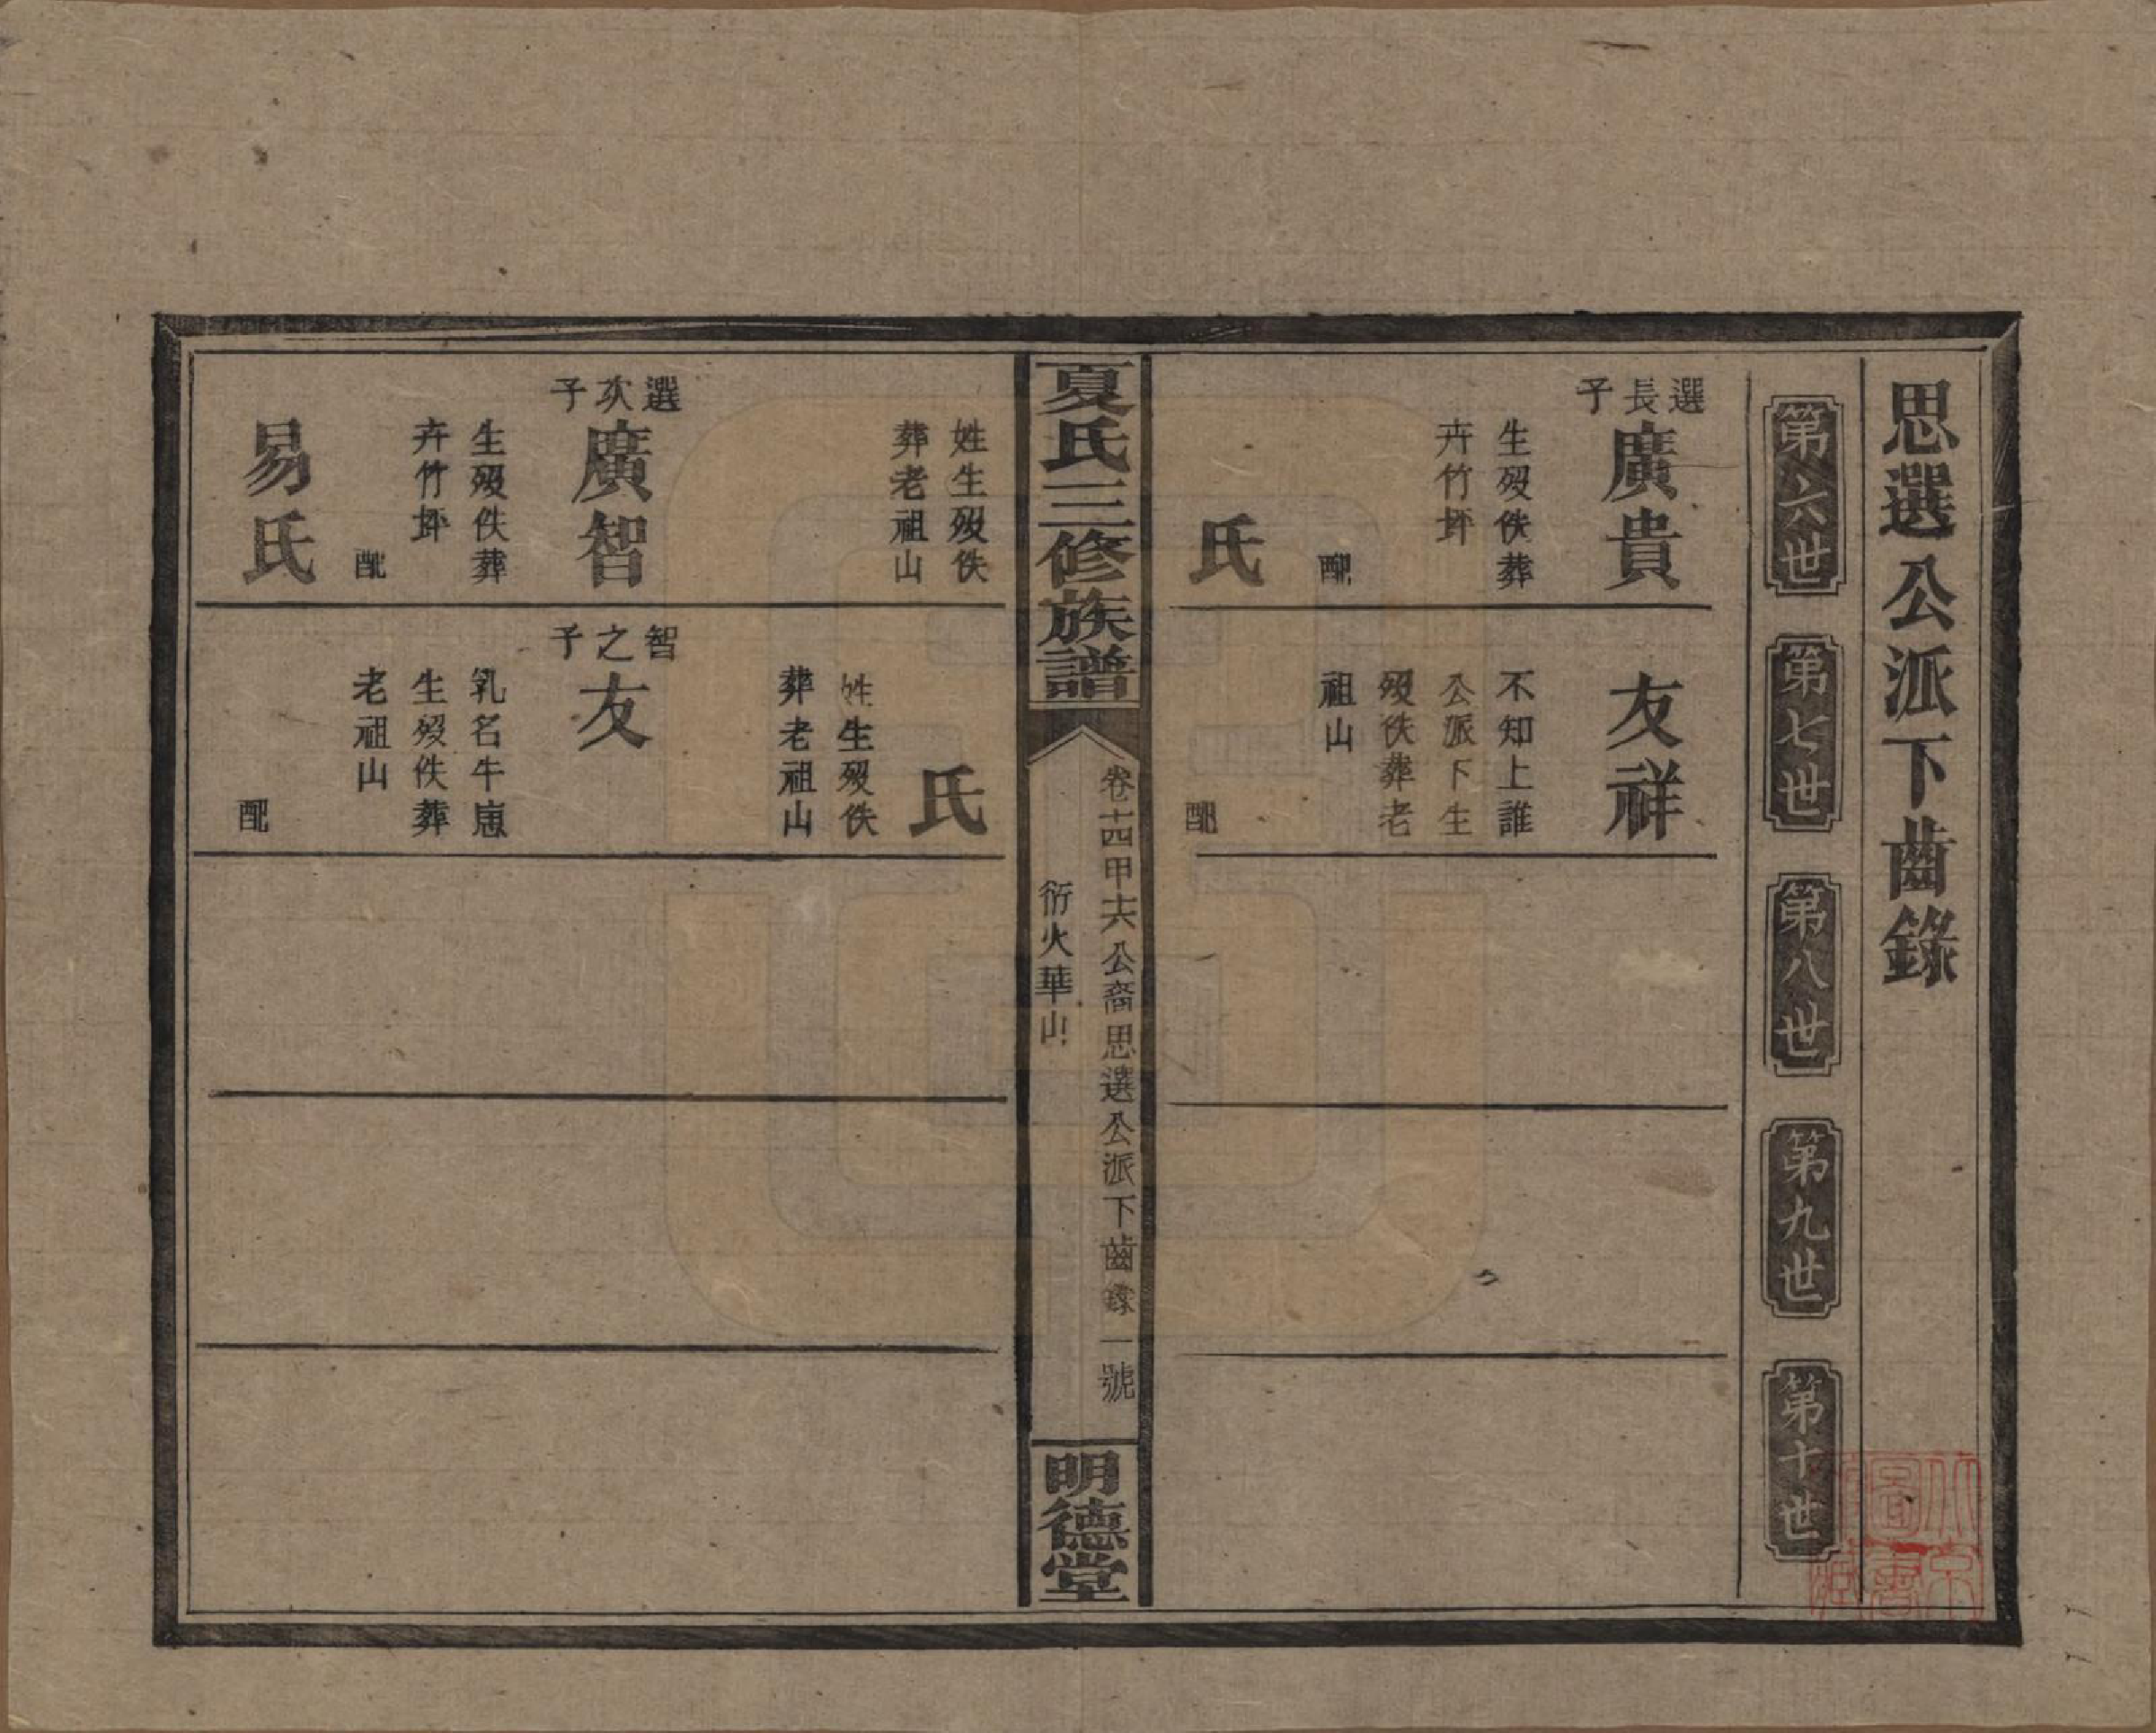 思選公派下齒錄
第六世
第七世
第八世
第九世
第十世
選長子
廣貴
生歿佚葬
卉竹坪
配
氏
友祥
不知上誰
公派下生
歿佚葬老
祖山
配
夏氏三修族譜
卷十四甲十六公裔思選公派下齒錄 一號
衍火華山
明德堂
姓生歿佚
葬老祖山
選次子
廣智
生歿佚葬
卉竹坪
配
易氏
氏
姓生歿佚
葬老祖山
智之子
友
乳名牛崽
生歿佚葬
老祖山
配